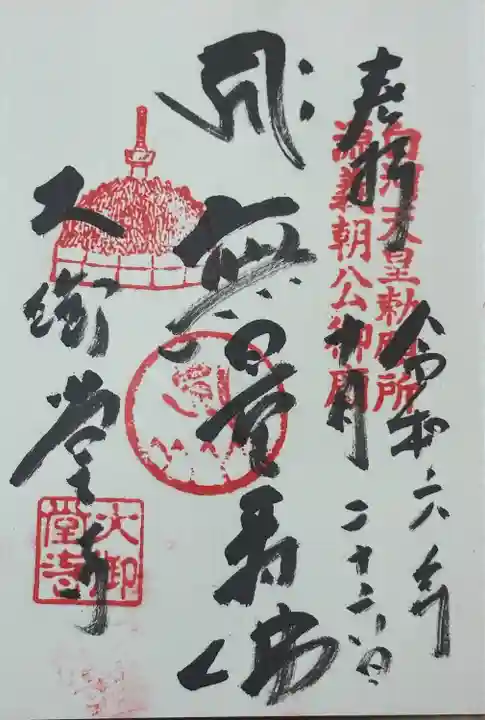 奉拝
白河天皇勅願所
源義朝公御廟
令和六年
十一月二十二日
無量寿佛
大御堂寺
大御堂寺